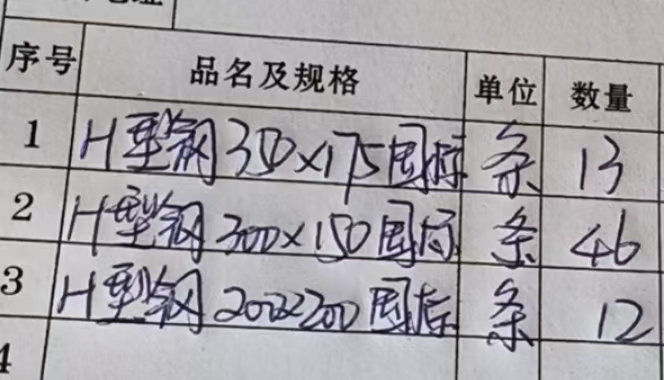 序号 品名及规格 单位 数量
1 H型钢350×175国标 条 13
2 H型钢300×150国标 条 46
3 H型钢200×200国标 条 12
4